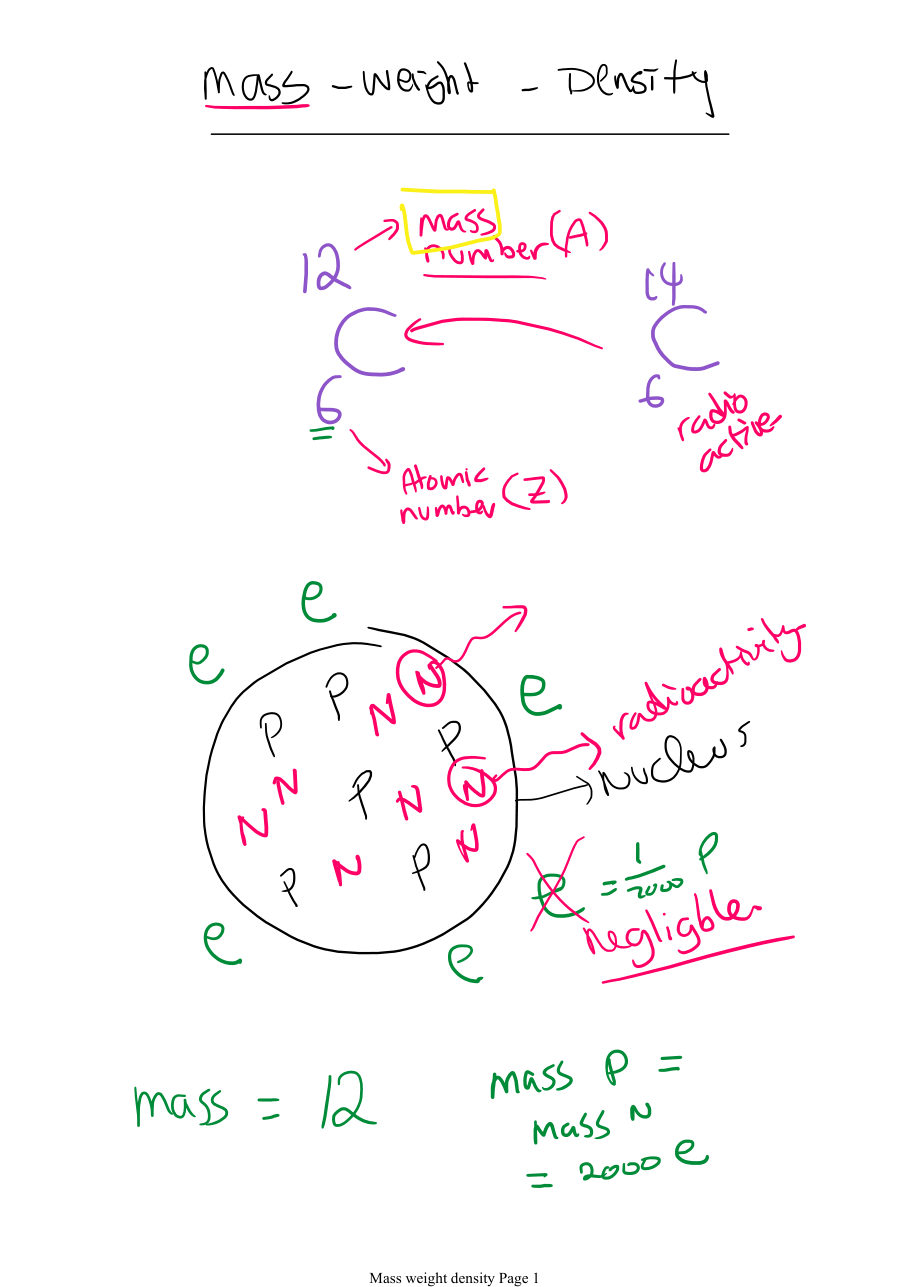 mass - weight - Density
mass
number (A)
12
C
6
14
C
6
radio
active
Atomic
number (Z)
e
e
e
P
P
N
N
P
N
N
P
N
N
N
P
N
P
N
P
radioactivity
nucleus
e = 1/2000 P
negligble
e
e
mass = 12
mass P =
mass N
= 2000 e
Mass weight density Page 1